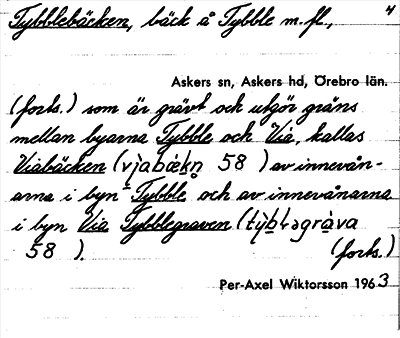 Tybblebäcken, bäck å Tybble m.fl., 4
Askers sn, Askers hd, Örebro län.
(forts.) som är grävt och utgör gräns
mellan byarna Tybble och Via, kallas
Viabäcken ( 58 ) av innevån-
arna i byn Tybble och av innevånarna
i byn Via Tybblegraven (
58 ). (forts.)
Per-Axel Wiktorsson 1963